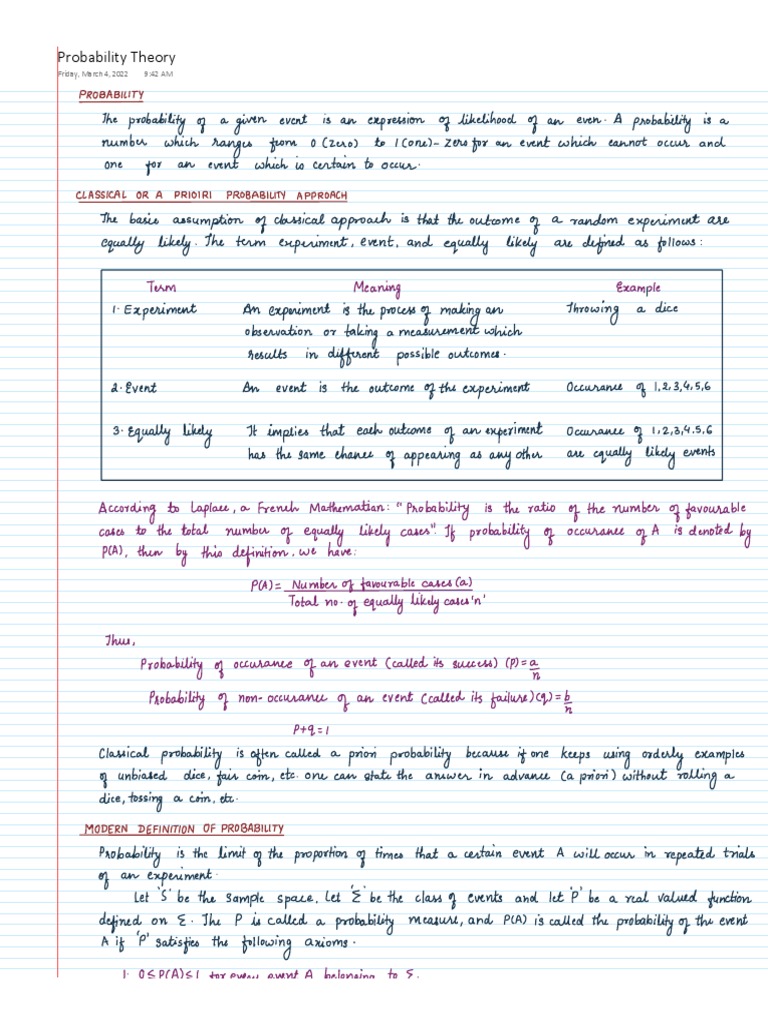 Probability Theory
Friday, March 4, 2022 9:42 AM
PROBABILITY
The probability of a given event is an expression of likelihood of an even. A probability is a
number which ranges from 0 (zero) to 1 (one)- Zero for an event which cannot occur and
one for an event which is certain to occur.
CLASSICAL OR A PRIOIRI PROBABILITY APPROACH
The basic assumption of classical approach is that the outcome of a random experiment are
equally likely. The term experiment, event, and equally likely are defined as follows:
Term Meaning Example
1. Experiment An experiment is the process of making an Throwing a dice
observation or taking a measurement which
results in different possible outcomes.
2. Event An event is the outcome of the experiment Occurance of 1,2,3,4,5,6
3. Equally likely It implies that each outcome of an experiment Occurance of 1,2,3,4,5,6
has the same chance of appearing as any other are equally likely events
According to Laplace, a French Mathematian: "Probability is the ratio of the number of favourable
cases to the total number of equally likely cases". If probability of occurance of A is denoted by
P(A), then by this definition, we have:
P(A) = Number of favourable cases (a)
Total no. of equally likely cases 'n'
Thus,
Probability of occurance of an event (called its success) (P) = a/n
Probability of non-occurance of an event (called its failure) (q) = b/n
P+q=1
Classical probability is often called a priori probability because if one keeps using orderly examples
of unbiased dice, fair coin, etc. one can state the answer in advance (a priori) without rolling a
dice, tossing a coin, etc.
MODERN DEFINITION OF PROBABILITY
Probability is the limit of the proportion of times that a certain event A will occur in repeated trials
of an experiment.
Let 'S' be the sample space, Let 'Σ' be the class of events and let 'P' be a real valued function
defined on Σ. The P is called a probability measure, and P(A) is called the probability of the event
A if 'P' satisfies the following axioms.
1. 0≤P(A)≤1 for every event A belonging to Σ.